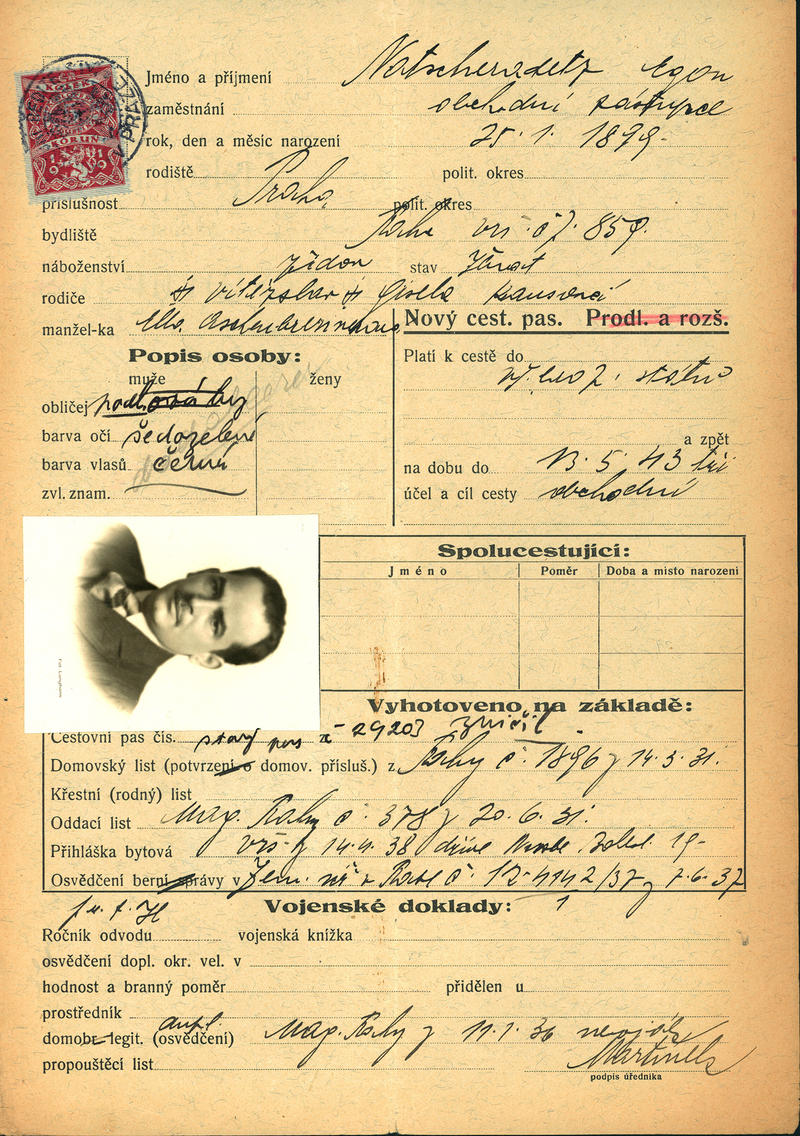 Jméno a příjmení Natscheradetz Egon
zaměstnání obchodní zástupce
rok, den a měsíc narození 25. 1. 1899.
rodiště Praha polit. okres
příslušnost polit. okres
bydliště Praha vrš. čp. 859.
náboženství židov. stav ženat
rodiče † Vítězslav † Gisela
manžel-ka Ella
Nový cest. pas. Prodl. a rozš.
Popis osoby:
muže ženy
obličej podlouhlý
barva očí šedozelené
barva vlasů černé
zvl. znam.
Platí k cestě do
vš. evrop. států
a zpět
na dobu do 13. 5. 43 tři
účel a cíl cesty obchodní
Spolucestující:
Jméno Poměr Doba a místo narození
Vyhotoveno na základě:
Cestovní pas čís. starý pas č 29203 zničil.
Domovský list (potvrzení o domov. přísluš.) z Prahy č. 1896 z 14. 3. 31.
Křestní (rodný) list
Oddací list Mag. Prahy č. 378 z 20. 6. 31.
Přihláška bytová vrš. z 14. 4. 38 dříve 19-
Osvědčení berní správy v Praze č. 12-4142/37 z 7. 6. 37
Vojenské doklady: 1
Ročník odvodu vojenská knížka
osvědčení dopl. okr. vel. v
hodnost a branný poměr přidělen u
prostředník
domobr-legit. (osvědčení) Mag. Prahy z 11. 1. 36 nevoják
propouštěcí list Martinek
podpis úředníka